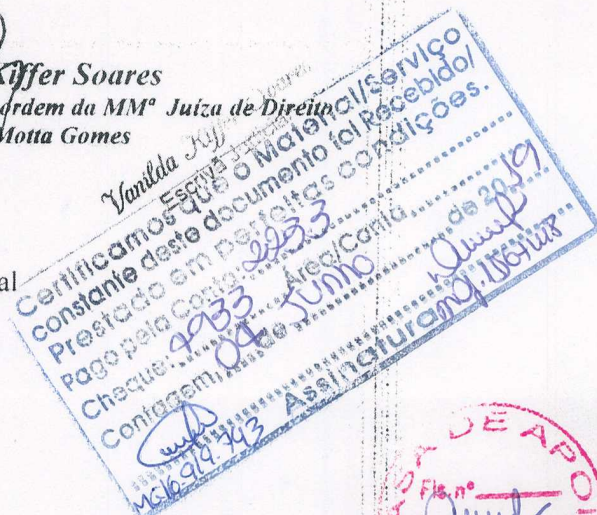 Kiffer Soares
ordem da MMª Juíza de Direito
Motta Gomes
Vanilda
Escrivã Judicial
al
Certificamos que o Material/Serviço
constante deste documento foi Recebido/
Prestado em perfeitas condições.
Pago pela Conta: 2233
Cheque: 4933 Área/Conta
Contagem, 04 de Junho de 2019
Assinatura
MG16.919.793
DE APO
Fls. nº